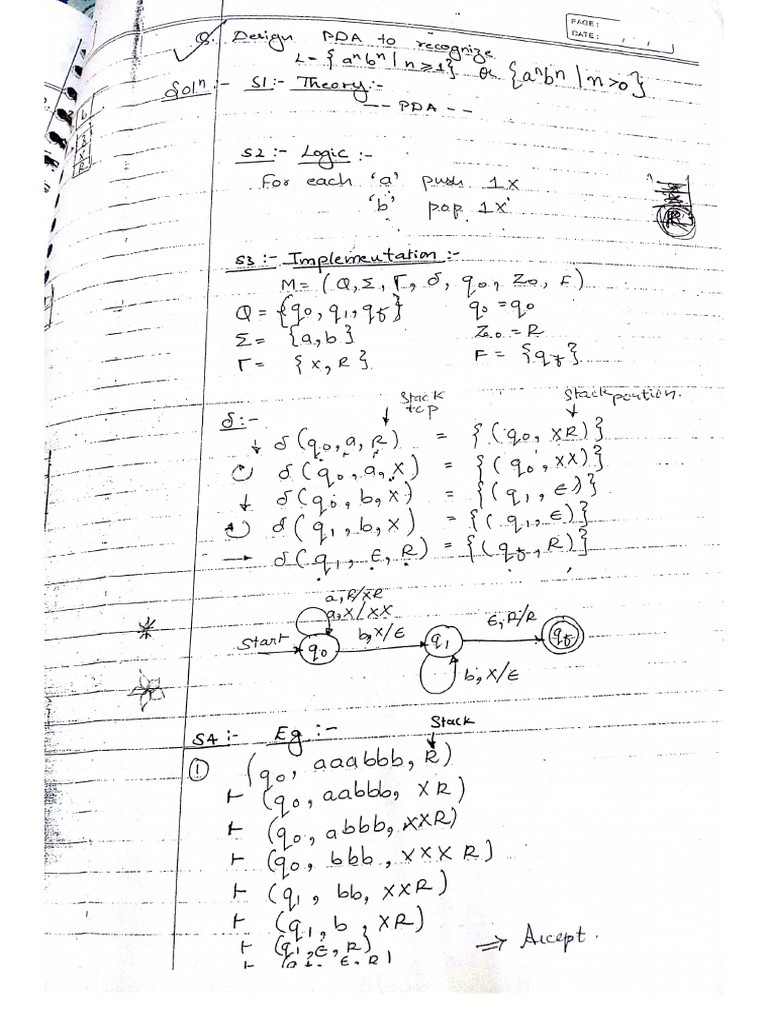 PAGE:
DATE:
Q. Design PDA to recognize
L = { aⁿbⁿ | n ≥ 1} or {aⁿbⁿ | n > 0}
Solⁿ :- S1:- Theory:-
--- PDA ---
S2 :- Logic :-
For each 'a' push 1 X
'b' pop 1 X
S3 :- Implementation :-
M = ( Q, Σ, Γ, δ, q₀, Z₀, F )
Q = {q₀, q₁, qf} q₀ = q₀
Σ = {a, b} Z₀ = R
Γ = {X, R} F = {qf}
δ :- Stack top Stack position.
↓ δ(q₀, a, R) = {(q₀, XR)}
↻ δ(q₀, a, X) = {(q₀, XX)}
↓ δ(q₀, b, X) = {(q₁, ε)}
↻ δ(q₁, b, X) = {(q₁, ε)}
→ δ(q₁, ε, R) = {(qf, R)}
a, R/XR
a, X/XX
Start q₀ b, X/ε q₁ ε, R/R qf
b, X/ε
S4 :- Eg :- Stack
① (q₀, aaabbb, R)
⊢ (q₀, aabbb, XR)
⊢ (q₀, abbb, XXR)
⊢ (q₀, bbb, XXXR)
⊢ (q₁, bb, XXR)
⊢ (q₁, b, XR)
⊢ (q₁, ε, R) ⇒ Accept.